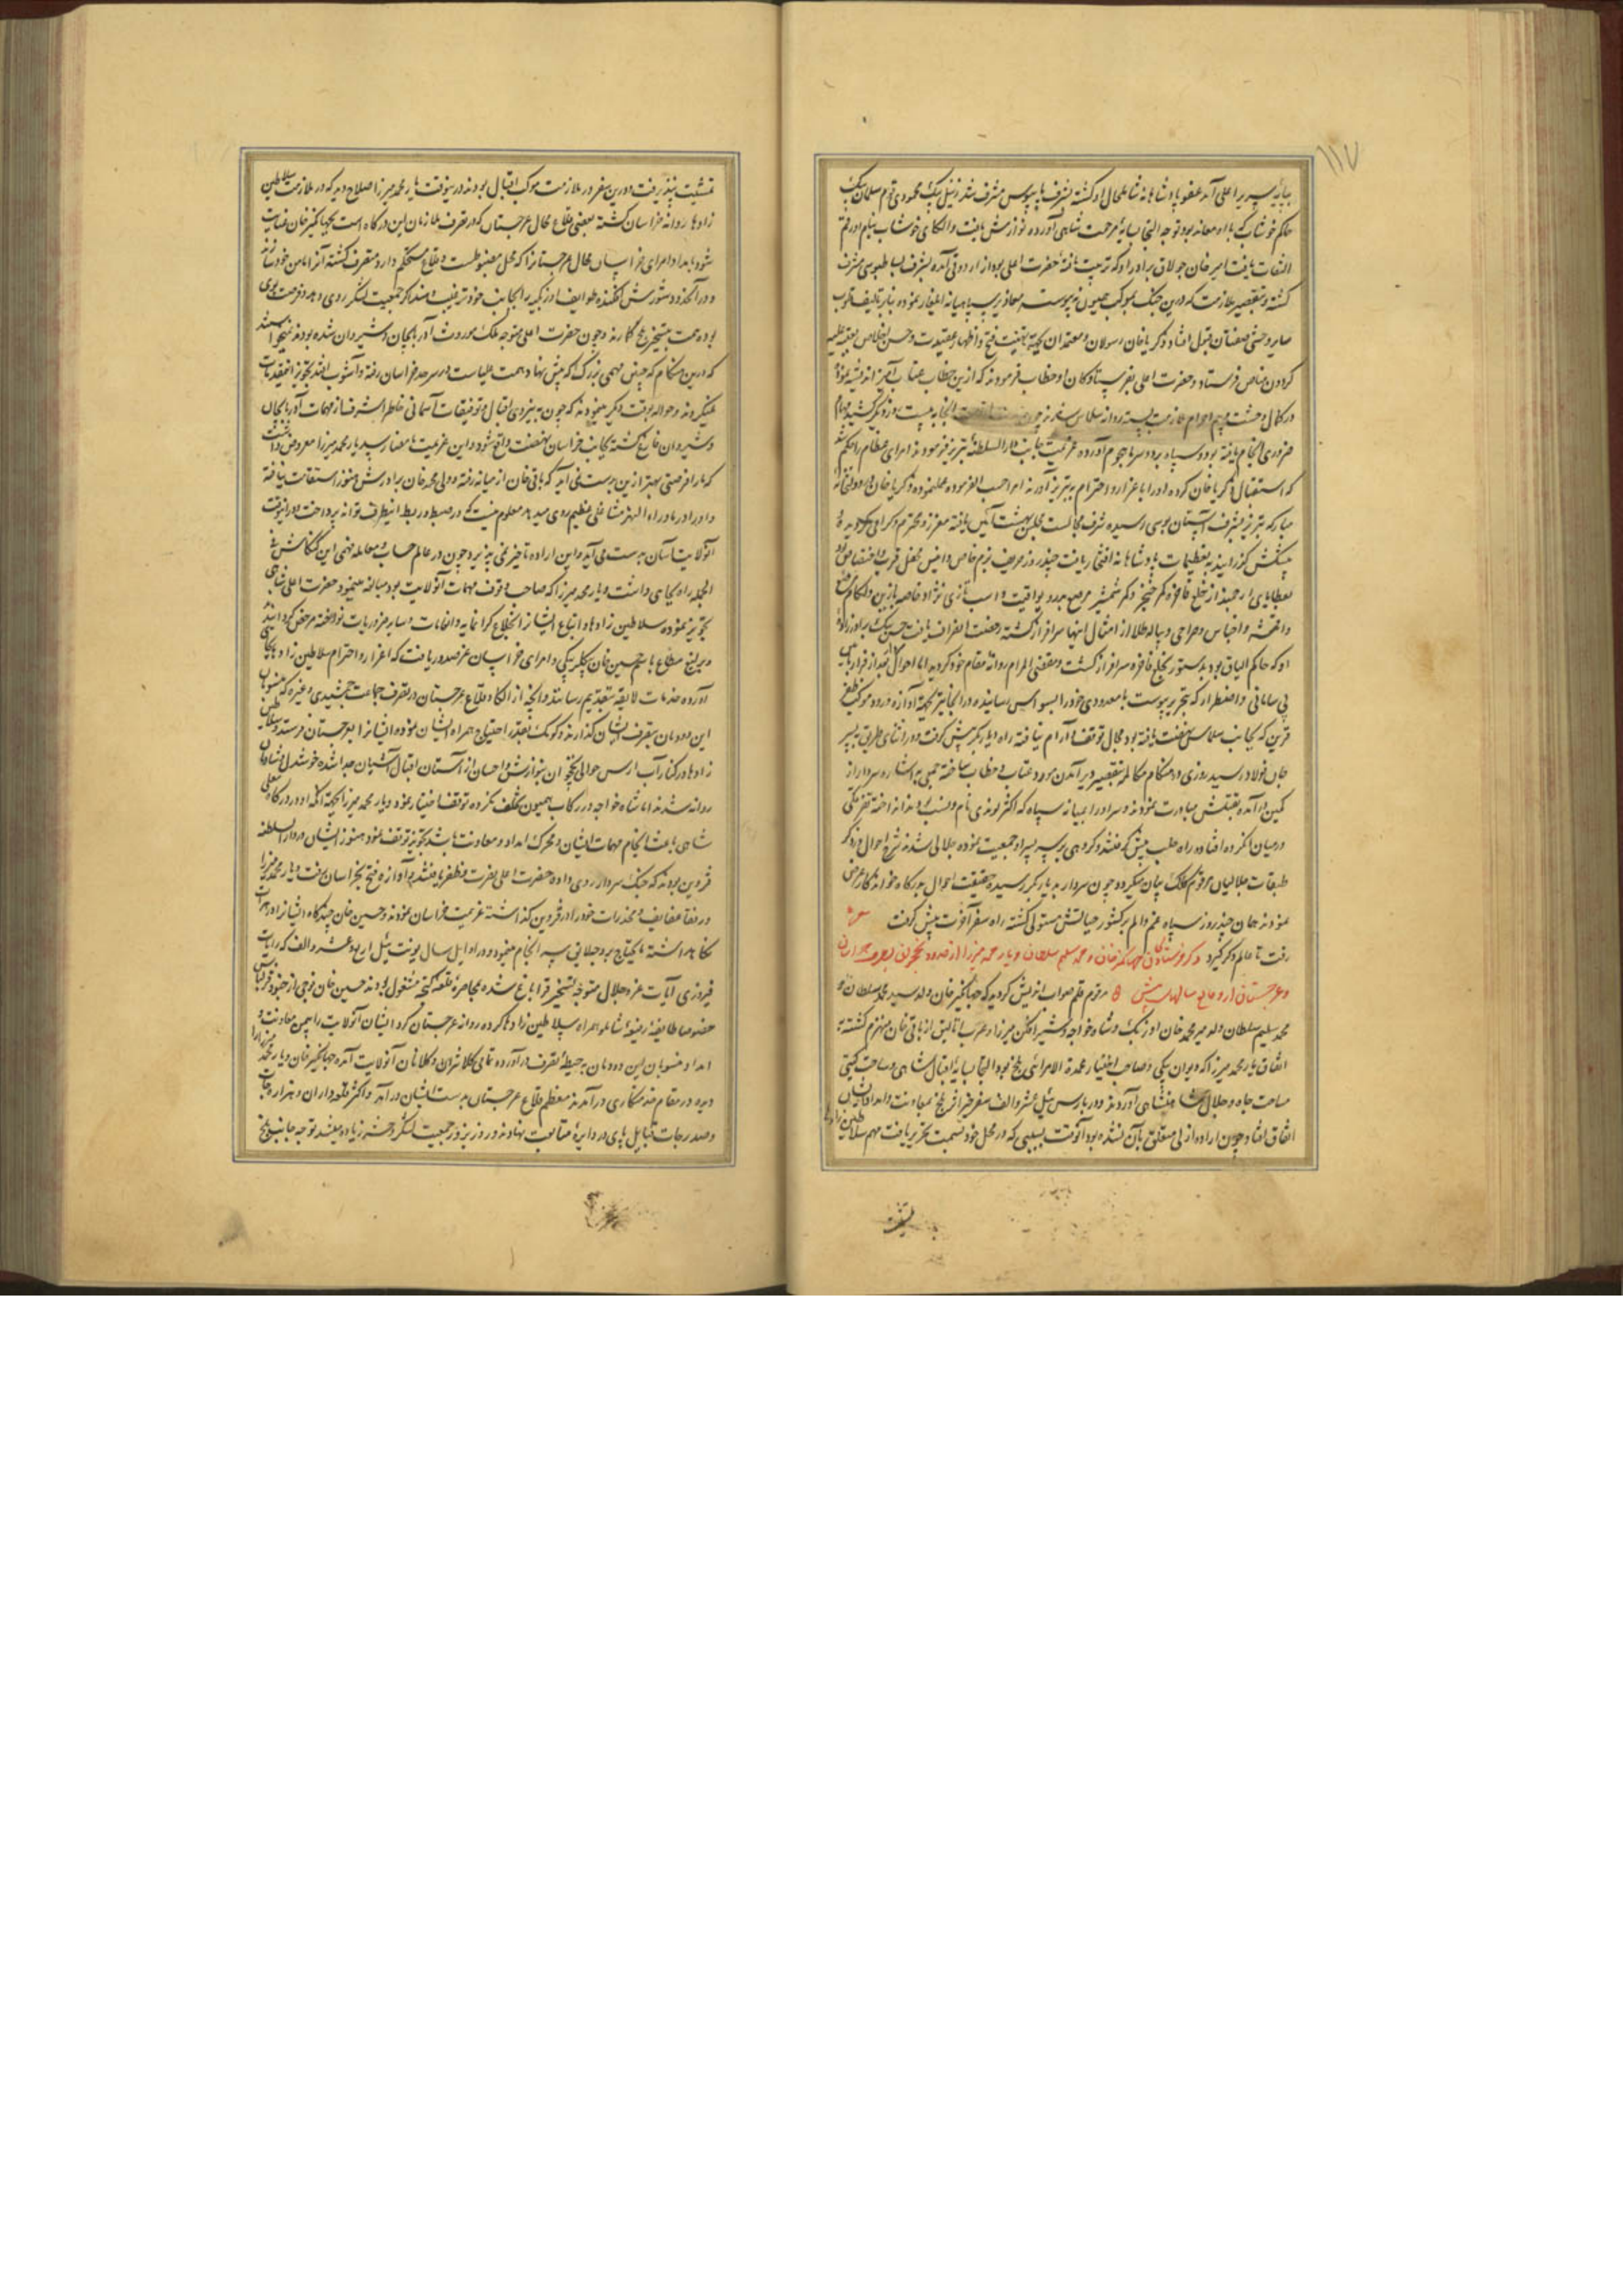 ۱۱۷
بپایه سریر اعلی آمد عفو پادشاهانه شامل حال او گشته بشرف پایبوس مشرف شد زینل بیک محمودی قوم سلمان بیک
حاکم خوشاب که با او معاند بود توجه التجا بپایه مرحمت شاهی آورده نوازش یافت و الکای خوشاب بنام او رقم
التفات یافت امیر خان جولاق برادر او که تربیت یافته حضرت اعلی بود از اردوی آمده بشرف بساط بوسی مشرف
گشته و بتقصیر ملازمت که درین جنگ بموکب همیون نپیوسته معاذیر سپاهیانه نموده بنابر تالیف قلوب
سایر وحشی صفتان قبول افتاد ذکریا خان رسولان و معتمدان بجهة تهنیت فتح و اظهار عقیدت و حسن اخلاص بعتبه علیه
کردون مناص فرستاد و حضرت اعلی بفرستادگان او خطاب فرمودند که ازین خطاب عتاب آمیز اندیشه نموده
در کمال وحشت و بیم احرام ملازمت بسته روانه سلماس شد
ضروری انجام یافته بود و سپاه برد و سرما هجوم آورده عزیمت جانب دار السلطنه تبریز فرمودند امرای عظام را حکم شد
که استقبال ذکریا خان کرده او را با عزاز و احترام به تبریز آورند امرا حسب الفرموده عمل نموده ذکریا خان
مبارکه تبریز بشرف آستان بوسی رسیده شرف مجالست مجلس بهشت آئین یافته معزز و محترم و گرامی گردید
پیشکش گذرانیده بتعظیمات پادشاهانه افتخار یافت چند روز حریف بزم خاص و انیس محفل قرب و اختصاص بود
بعطایای ارجمند از خلع فاخره و کمر خنجر و کمر شمشیر مرصع بدر و یواقیت و اسب تازی نژاد خاصه با زین و لگام مرصع
و اقمشه و اجناس و صراحی و پیاله طلا از امثال اینها سرافراز گشته رخصت انصراف یافت حسن بیک برادر زاده
او که حاکم الباق بود بدستور بخلع فاخره سرافراز گشت و مقضی المرام روانه مقام خود گردید اما احوال
بی سامانی و اضطرار که بتحریر پیوست با معدودی خود را بسیواس رسانیده در آنجا نیز بجهة آوازه ورود موکب ظفر
قرین که بجانب سلماس نهضت یافته بود مجال توقف و آرام نیافته راه دیاربکر پیش گرفت و در اثنای طریق به پسر
جان فولاد رسید روزی در هنگام مکالمه بتقصیر دیر آمدن مورد عتاب و خطاب ساخته جمعی باشاره سردار از
کمین در آمده بقتلش مبادرت نمودند و سر او را بمیانه سپاه که اکثر لوندی نام و نسب بودند انداخته تفرقه
در میان لشکر وه افتاده راه حلب پیش گرفتند و گروهی بر سر پسر او جمعیت نموده جلالی شدند شرح احوال
طبقات جلالیان مرقوم کلک بیان میگردد چون سردار به دیاربکر رسیده حقیقت احوال بدرگاه خواندگار عرض
نمودند همان چند روز سپاه غم و الم بر کشور حیاتش مستولی گشته راه سفر آخرت پیش گرفت شعر
رفت تا عالم دگر گیرد ذکر فرستادن جهانگیر خان و محمد سلیم سلطان و یار محمد میرزا از حدود نخجوان
و غرجستان مرقوم قلم صواب اندیش گردید که جهانگیر خان ولد سید محمد سلطان و
محمد سلیم سلطان ولد پیر محمد خان اوزبک و شاه خواجه و شیر افکن میرزا و عرب اتالیق از باقی خان منهزم گشته به
اتفاق یار محمد میرزا که دیوان بیکی و صاحب اختیار عمدة الامرائی بلخ بود التجا بپایه اقبال شاهی و ساحت گیتی
مساحت جاه و جلال شاهنشاهی آوردند و در بارس ئیل عشر و الف سفر خیر اثر بلخ بمعاونت و امداد ایشان
اتفاق افتاد چون اراده ازلی متعلق بآن نشده بود آنوقت بسببی که در محل خود سمت تحریر یافت مهم سلاطین زادها
تمشیت
تمشیت پذیرفت و درین سفر در ملازمت موکب اقبال بودند درینوقت یار محمد میرزا صلاح دید که در ملازمت سلاطین
زادها روانه خراسان گشته بعضی قلاع محال غرجستان که در تصرف ملازمان این درگاه است بجهانگیر خان عنایت
شود بامداد امرای خراسان محال غرجستانرا که محل مضبوط است و قلاع مستحکم دارد متصرف گشته آنرا مامن خود سازند
و در آنحدود شورش افکنده طوایف اوزبکیه را بجانب خود ترغیب دهند اگر جمعیت لشگر روی دهد و فرصت بوی
بوده همت بتسخیر بلخ گمارند و چون حضرت اعلی متوجه ملک موروث آذربایجان و شیروان شده بودند نمیخواستند
که درین هنگام که چنین مهمی بزرگ که پیش نهاد همت والاست در سرحد خراسان رفته و آشوب افتد تجویز انمقدمات
نمیکردند و حواله بوقت دیگر مینمودند که چون به نیروی اقبال و توفیقات آسمانی خاطر اشرف از مهمات آذربایجان
و شیروان فارغ گشته بجانب خراسان نهضت واقع شود و این عزیمت بامضا رسد یار محمد میرزا معروض داشت
که ما را فرصتی بهتر ازین بدست نمی آید که باقی خان از میانه رفته و ولی محمد خان برادرش هنوز استقامت نیافته
و او را در ماوراء النهر مشاغل عظیم روی میدهد معلوم نیست که در ضبط و ربط اینطرف تواند پرداخت و درینوقت
آنولایت آسان بدست می آید و این اراده تاخیر نمی پذیرد چون در عالم حساب و معامله فهمی این کنکاش فی
الجمله راه بجایی داشت و یار محمد میرزا که صاحب وقوف مهمات آنولایت بود مبالغه مینمود حضرت اعلی شاهی
تجویز نموده سلاطین زادها و اتباع ایشانرا بخلاع گرانمایه و انعامات و سایر ضروریات نواخته مرخص گردانیدند
و یرلیغ مطاع باسم حسین خان بیگلربیگی و امرای خراسان عز صدور یافت که اعزاز و احترام سلاطین زادها بجای
آورده خدمات لایقه بتقدیم رسانند و آنچه از الکا و قلاع غرجستان در تصرف جماعت جمشیدی و غیره که منسوبان
این دودمان بتصرف ایشان گذارند و کومک بقدر احتیاج همراه ایشان نموده ایشانرا بغرجستان فرستند سلاطین
زادها در کنار آب ارس حوالی نخجوان بنوازش و احسان از آستان اقبال آشیان جدا شده خوشدل و شادمان
روانه شدند اما شاه خواجه در رکاب همیون تخلف نکرده توقف اختیار نمود و یار محمد میرزا بجهة آنکه او در درگاه معلی
شاهی باعث انجام مهمات ایشان و محرک امداد و معاونت باشد تجویز توقف نمود هنوز ایشان در دار السلطنه
قزوین بودند که جنگ سردار روی داده حضرت اعلی بنصرت و ظفر یافتند و آوازه فتح بخراسان رفت و یار محمد میرزا
و رفقا ضعایف و مخدرات خود را در قزوین گذاشته عزیمت خراسان نمودند و حسین خان چند گاه ایشانرا در هرات
نگاهداشته مایحتاج سپه انجام مینمود و در اوایل سال یونت ئیل اربع عشر و الف که رایات
فیروزی آیات عز و جلال متوجه تسخیر قراباغ شده بمحاصره قلعه گنجه مشغول بودند حسین خان فوجی از جنود قزلباش
خصوصا طایفه رفیعه شاملو همراه سلاطین زادها کرده روانه غرجستان کرد ایشان آنولایت را بیمن معاونت و
امداد منسوبان این دودمان بحیطه تصرف درآورده تمامی کلانتران و کلانان آنولایت آمده جهانگیر خان و یار محمد میرزا را
دیده در مقام خدمتکاری درآمدند معظم قلاع غرجستان بدست ایشان درآمد و اکثر قلعه داران و هزاره جات
و صدرجات قبایل پای در دایره متابعت نهادند و روز بروز جمعیت لشگر و حشم زیاده میشد توجه جانب بلخ